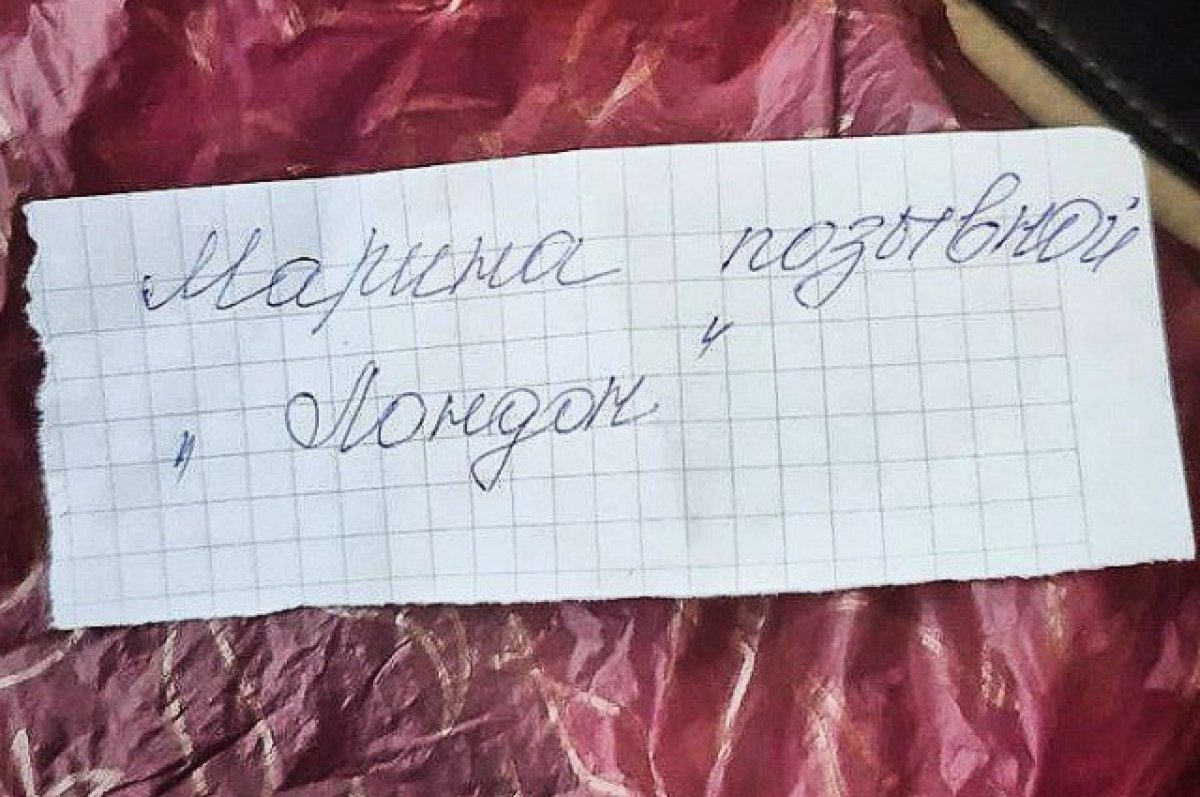 Марина позывной
„Лондон"